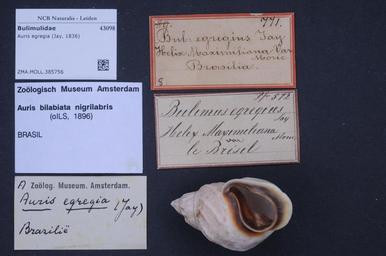 NCB Naturalis - Leiden
Bulimulidae 43098
Auris egregia (Jay, 1836)
ZMA.MOLL.385756
Zoölogisch Museum Amsterdam
Auris bilabiata nigrilabris
(oILS, 1896)
BRASIL
A Zoölog. Museum. Amsterdam.
Auris egregia (Jay)
Brazilië
771.
Bul. egregius Jay
Helix Maximiliana Var
Moric
Brasilia.
S
Bulimus egregius
Jay
Helix Maximiliana
var
Moric.
le Brésil